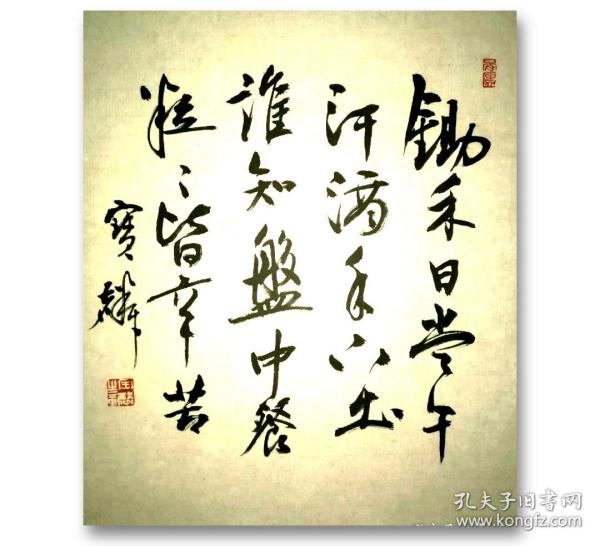 鋤禾日當午
汗滴禾下土
誰知盤中餐
粒〻皆辛苦
寶麟
孔夫子旧书网
www.kongfz.com